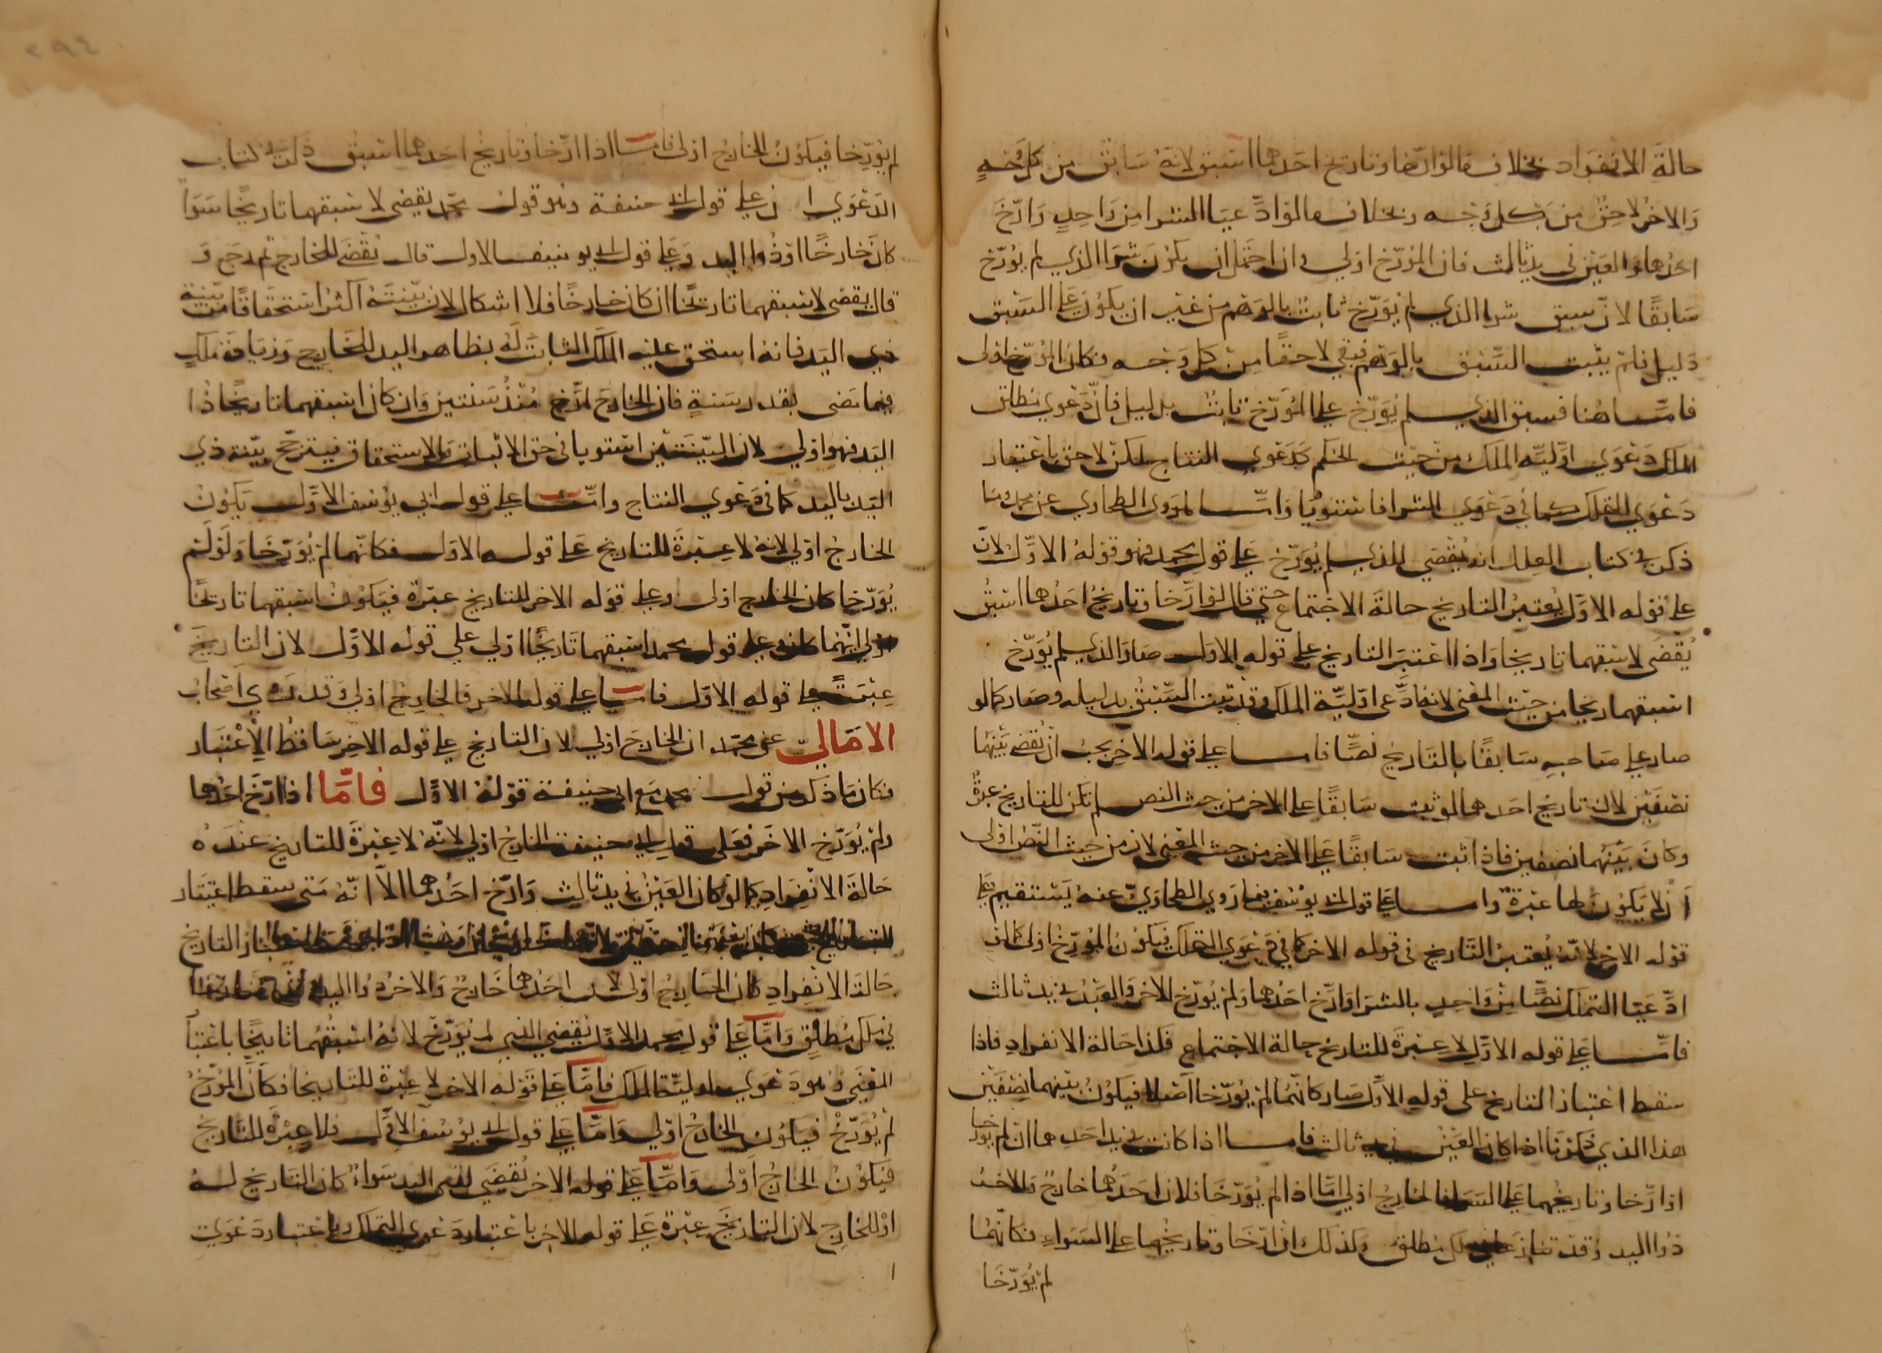 حالة الانفراد بخلاف ما لو ارخا وتاريخ احدهما اسبق لانه سابق من كل وجه
والاخر لاحق من كل وجه وبخلاف ما لو ادعيا الشرا من واحد وارخ
احدهما والعين في يد ثالث فان المؤرخ اولى وان احتمل ان يكون شرا الذي لم يؤرخ
سابقا لان سبق شرا الذي لم يؤرخ ثابت بالوهم من غير ان يكون على السبق
دليل فلم يثبت السبق بالوهم فبقي لاحقا من كل وجه فكان المؤرخ اولى
فاما هنا فسبق الذي لم يؤرخ على المؤرخ ثابت بدليل فان دعوى مطلق
الملك دعوى اولية الملك من حيث الحكم كدعوى النتاج لكن لاحق باعتبار
دعوى التملك كما في دعوى الشرا فاستويا واما لمروى الطحاوي عن محمد وما
ذكر في كتاب العلل انه يقضى للذي لم يؤرخ على قول محمد فهو قوله الاول لان
على قوله الاول يعتبر التاريخ حالة الاجتماع حتى قال لو ارخا وتاريخ احدهما اسبق
يقضى لاسبقهما تاريخا واذا اعتبر التاريخ على قوله الاول صار الذي لم يؤرخ
اسبقهما تاريخا من حيث المعنى لانه ادعى اولية الملك وقد ثبت السبق بدليله وصار كما لو
صار على صاحبه سابقا بالتاريخ نصا فاما على قوله الاخر يجب ان يقضى بينهما
نصفين لان تاريخ احدهما لو ثبت سابقا على الاخر من حيث النص لم يكن للتاريخ عبرة
وكان بينهما نصفين فاذا ثبت سابقا على الاخر من حيث المعنى لان من حيث النص اولى
ان لا يكون لها عبرة واما على قول ابي يوسف فما روى الطحاوي عنه يستقيم على
قوله الاخر لانه يعتبر التاريخ في قوله الاخر كما في دعوى التملك فيكون المؤرخ اولى كما لو
ادعيا التملك نصا من واحد بالشرا وارخ احدهما ولم يؤرخ الاخر والعبد في يد ثالث
فاما على قوله الاول لا عبرة للتاريخ حالة الاجتماع فكذا حالة الانفراد فاذا
سقط اعتبار التاريخ على قوله الاول صار كانهما لم يؤرخا اصلا فيكون بينهما نصفين
هذا الذي ذكرنا اذا كان العين في يد ثالث فاما اذا كانت في يد احدهما ان لم يؤرخا
او ارخا وتاريخهما على السواء فالخارج اولى اما اذا لم يؤرخا فلان احدهما خارج والاخر
ذو اليد وقد تنازعا في ملك مطلق وكذلك ان ارخا وتاريخهما على السواء فكانهما
لم يؤرخا
لم يؤرخا فيكون الخارج اولى فاما اذا ارخا وتاريخ احدهما اسبق ذكر في كتاب
الدعوى ان على قول ابي حنيفة وهو قول محمد يقضى لاسبقهما تاريخا سوا
كان خارجا او ذو اليد وعلى قول ابي يوسف الاول قال يقضى للخارج ثم رجع و
قال يقضى لاسبقهما تاريخا ان كان خارجا فلا اشكال لان بينته اكثر استحقاقا من بينة
ذي اليد فانه استحق عليه الملك الثابت له بظاهر اليد للخارج وزيادة ملك
فيما مضى بقدر سنة فان الخارج ارخ منذ سنتين وان كان اسبقهما تاريخا ذا
اليد فهو اولى لان البينتين استويا في حق الاثبات والاستحقاق فيترجح بينة ذي
اليد باليد كما في دعوى النتاج واما على قول ابي يوسف الاول يكون
الخارج اولى لانه لا عبرة للتاريخ على قوله الاول فكانهما لم يؤرخا ولو لم
يؤرخا كان الخارج اولى وعلى قوله الاخر للتاريخ عبرة فيكون اسبقهما تاريخا
اولى ايهما كان وعلى قول محمد اسبقهما تاريخا اولى على قوله الاول لان التاريخ
عبرة على قوله الاول فاما على قوله الاخر فالخارج اولى وقد روى اصحاب
الامالي عن محمد ان الخارج اولى لان التاريخ على قوله الاخر ساقط الاعتبار
فكان ما ذكر من قول محمد مع ابي حنيفة قوله الاول فاما اذا ارخ احدهما
ولم يؤرخ الاخر فعلى قول ابي حنيفة الخارج اولى لانه لا عبرة للتاريخ عنده
حالة الانفراد كما لو كان العين في يد ثالث وارخ احدهما الا انه متى سقط اعتبار
التاريخ
حالة الانفراد كان الخارج اولى لان احدهما خارج والاخر ذو اليد
في ملك مطلق واما على قول محمد الاول يقضى للذي لم يؤرخ لانه اسبقهما تاريخا باعتبار
المعنى وهو دعوى اولية الملك فاما على قوله الاخر لا عبرة للتاريخ فكان المؤرخ
لم يؤرخ فيكون الخارج اولى واما على قول ابي يوسف الاول فلا عبرة للتاريخ
فيكون الخارج اولى واما على قوله الاخر يقضى لذي اليد سواء كان التاريخ له
او للخارج لان التاريخ عبرة على قوله الاخر باعتبار دعوى التملك وباعتبار دعوى